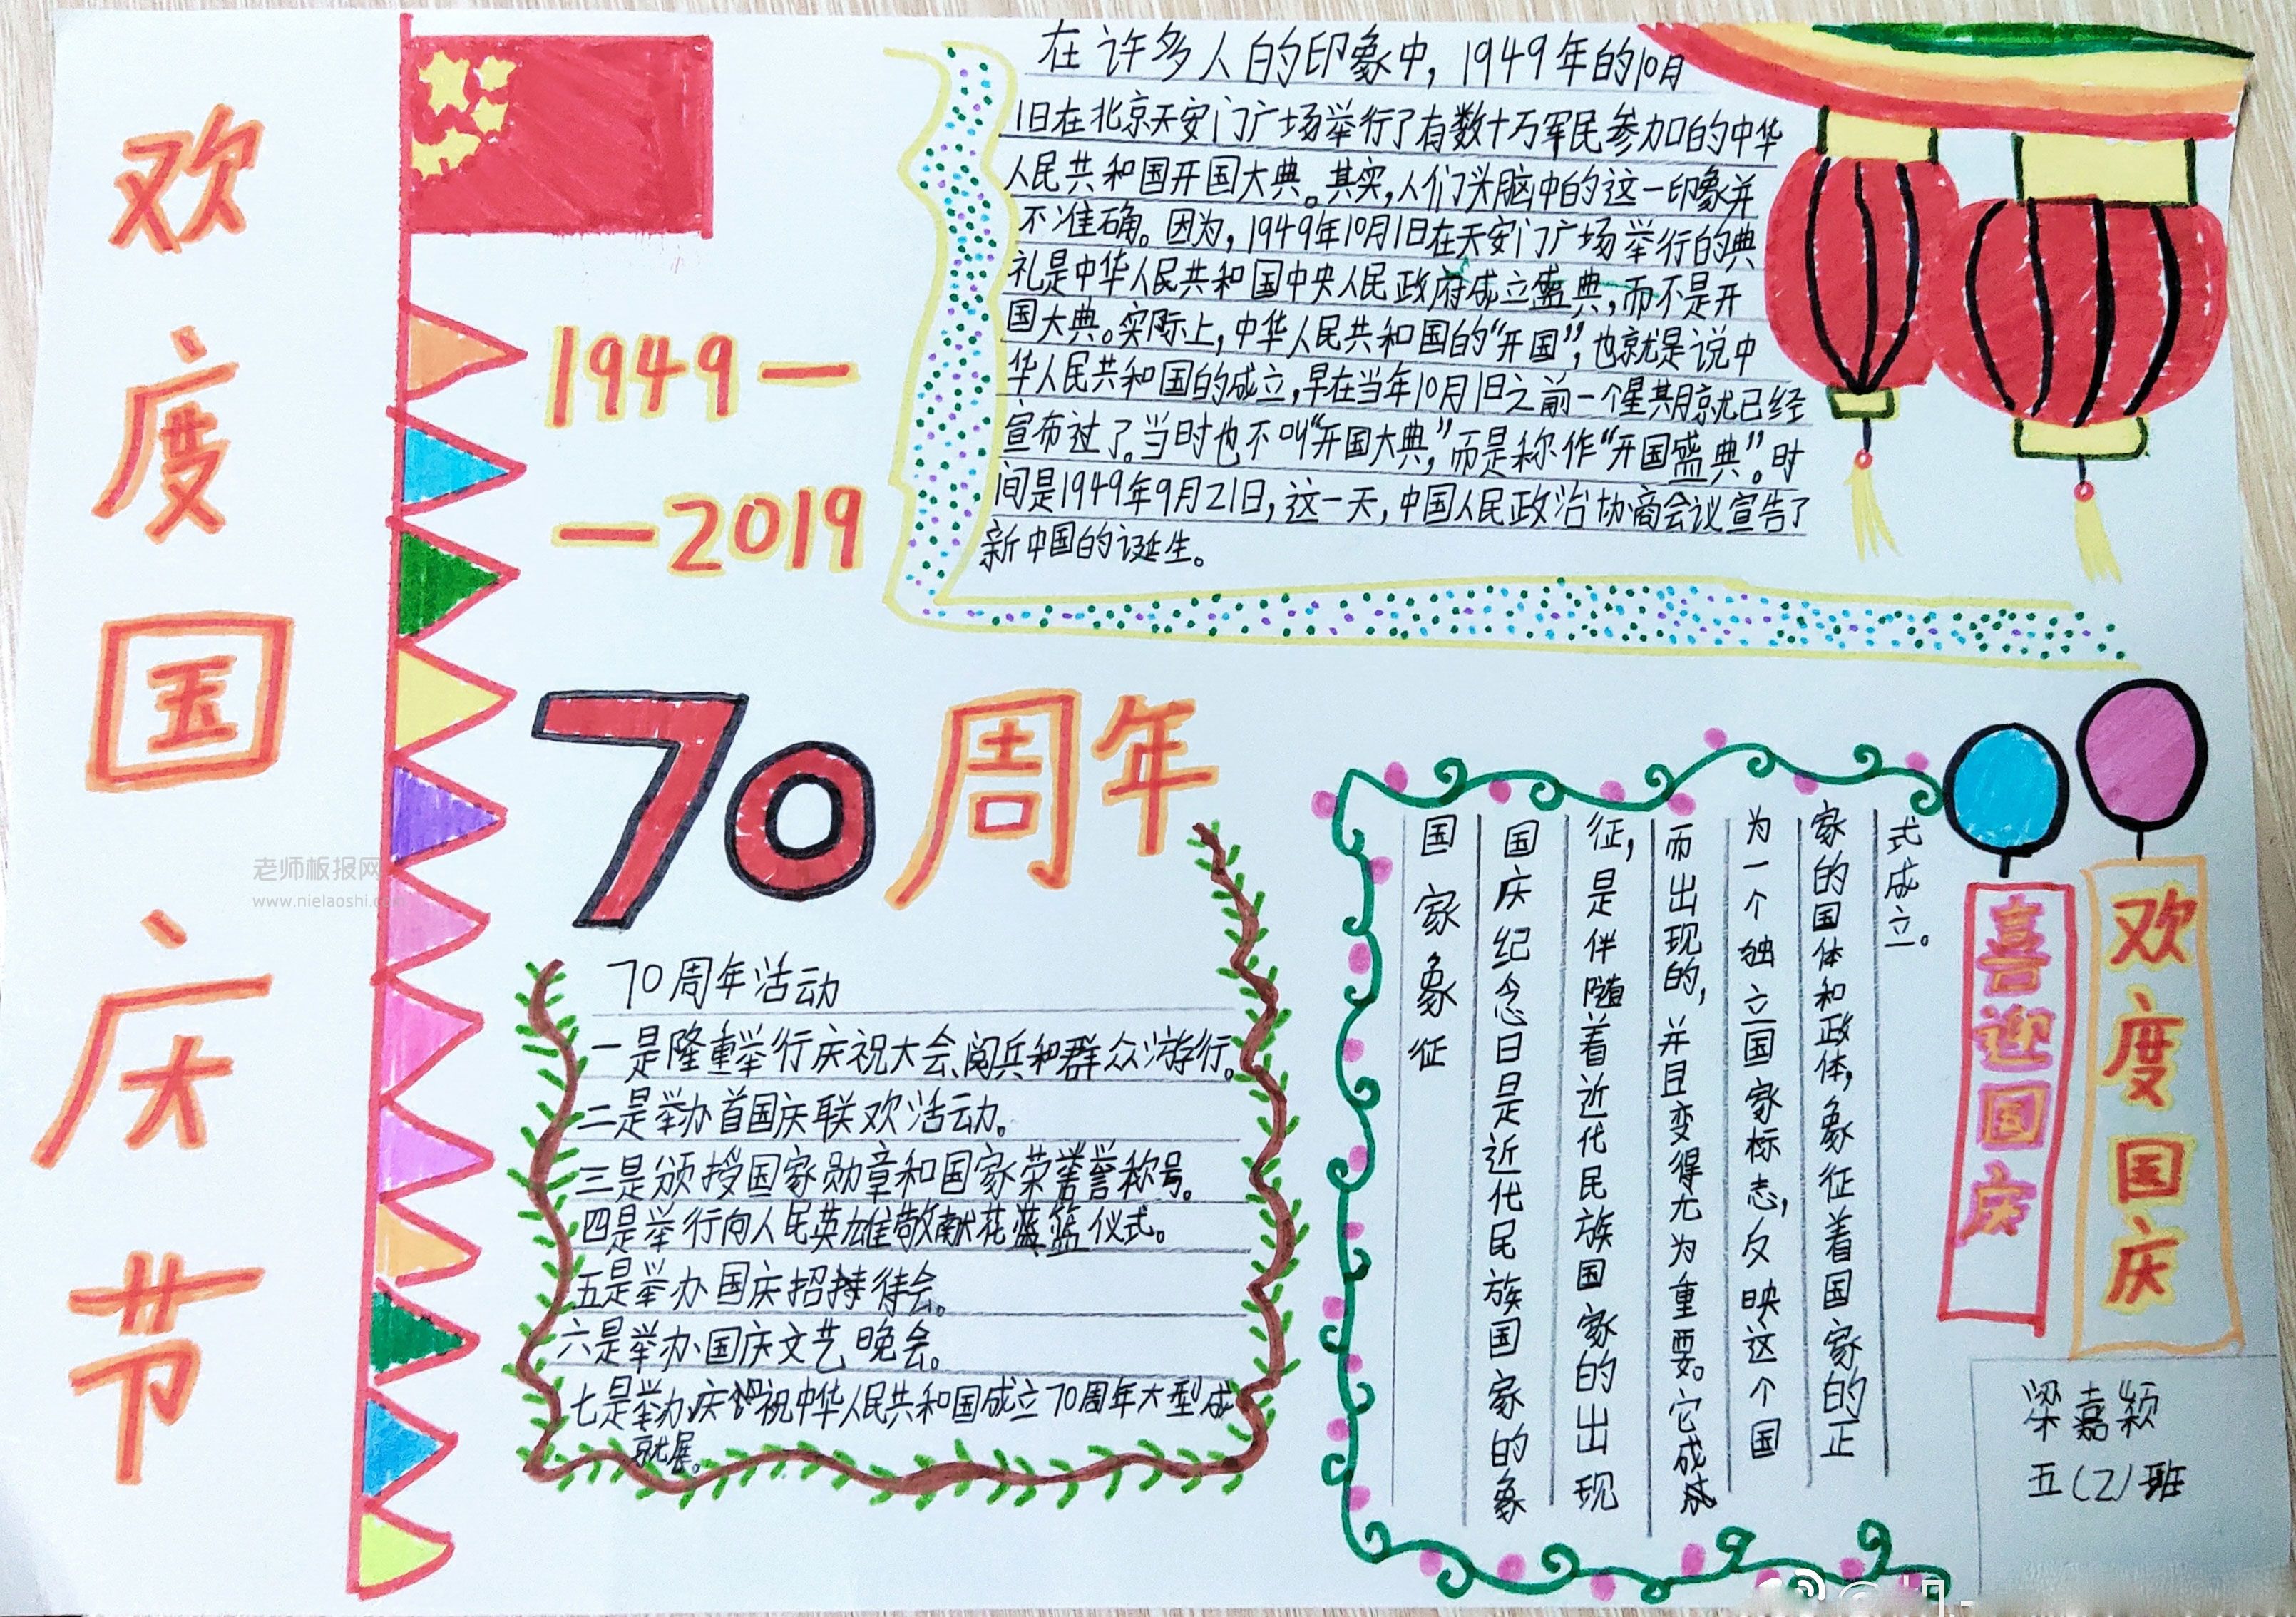 欢度国庆节
1949—
—2019
在许多人的印象中,1949年的10月
1日在北京天安门广场举行了有数十万军民参加的中华
人民共和国开国大典。其实,人们头脑中的这一印象并
不准确。因为,1949年10月1日在天安门广场举行的典
礼是中华人民共和国中央人民政府成立盛典,而不是开
国大典。实际上,中华人民共和国的“开国”,也就是说中
华人民共和国的成立,早在当年10月1日之前一个星期就已经
宣布过了。当时也不叫“开国大典”,而是称作“开国盛典”。时
间是1949年9月21日,这一天,中国人民政治协商会议宣告了
新中国的诞生。
70周年
70周年活动
一是隆重举行庆祝大会、阅兵和群众游行。
二是举办首国庆联欢活动。
三是颁授国家勋章和国家荣誉称号。
四是举行向人民英雄敬献花篮仪式。
五是举办国庆招待会。
六是举办国庆文艺晚会。
七是举办庆祝中华人民共和国成立70周年大型成
就展。
国家象征
国庆纪念日是近代民族国家的象
征,是伴随着近代民族国家的出现
而出现的,并且变得尤为重要。它成
为一个独立国家标志,反映这个国
家的国体和政体,象征着国家的正
式成立。
喜迎国庆
欢度国庆
梁嘉颖
五(2)班
老师板报网
www.nielaoshi.com